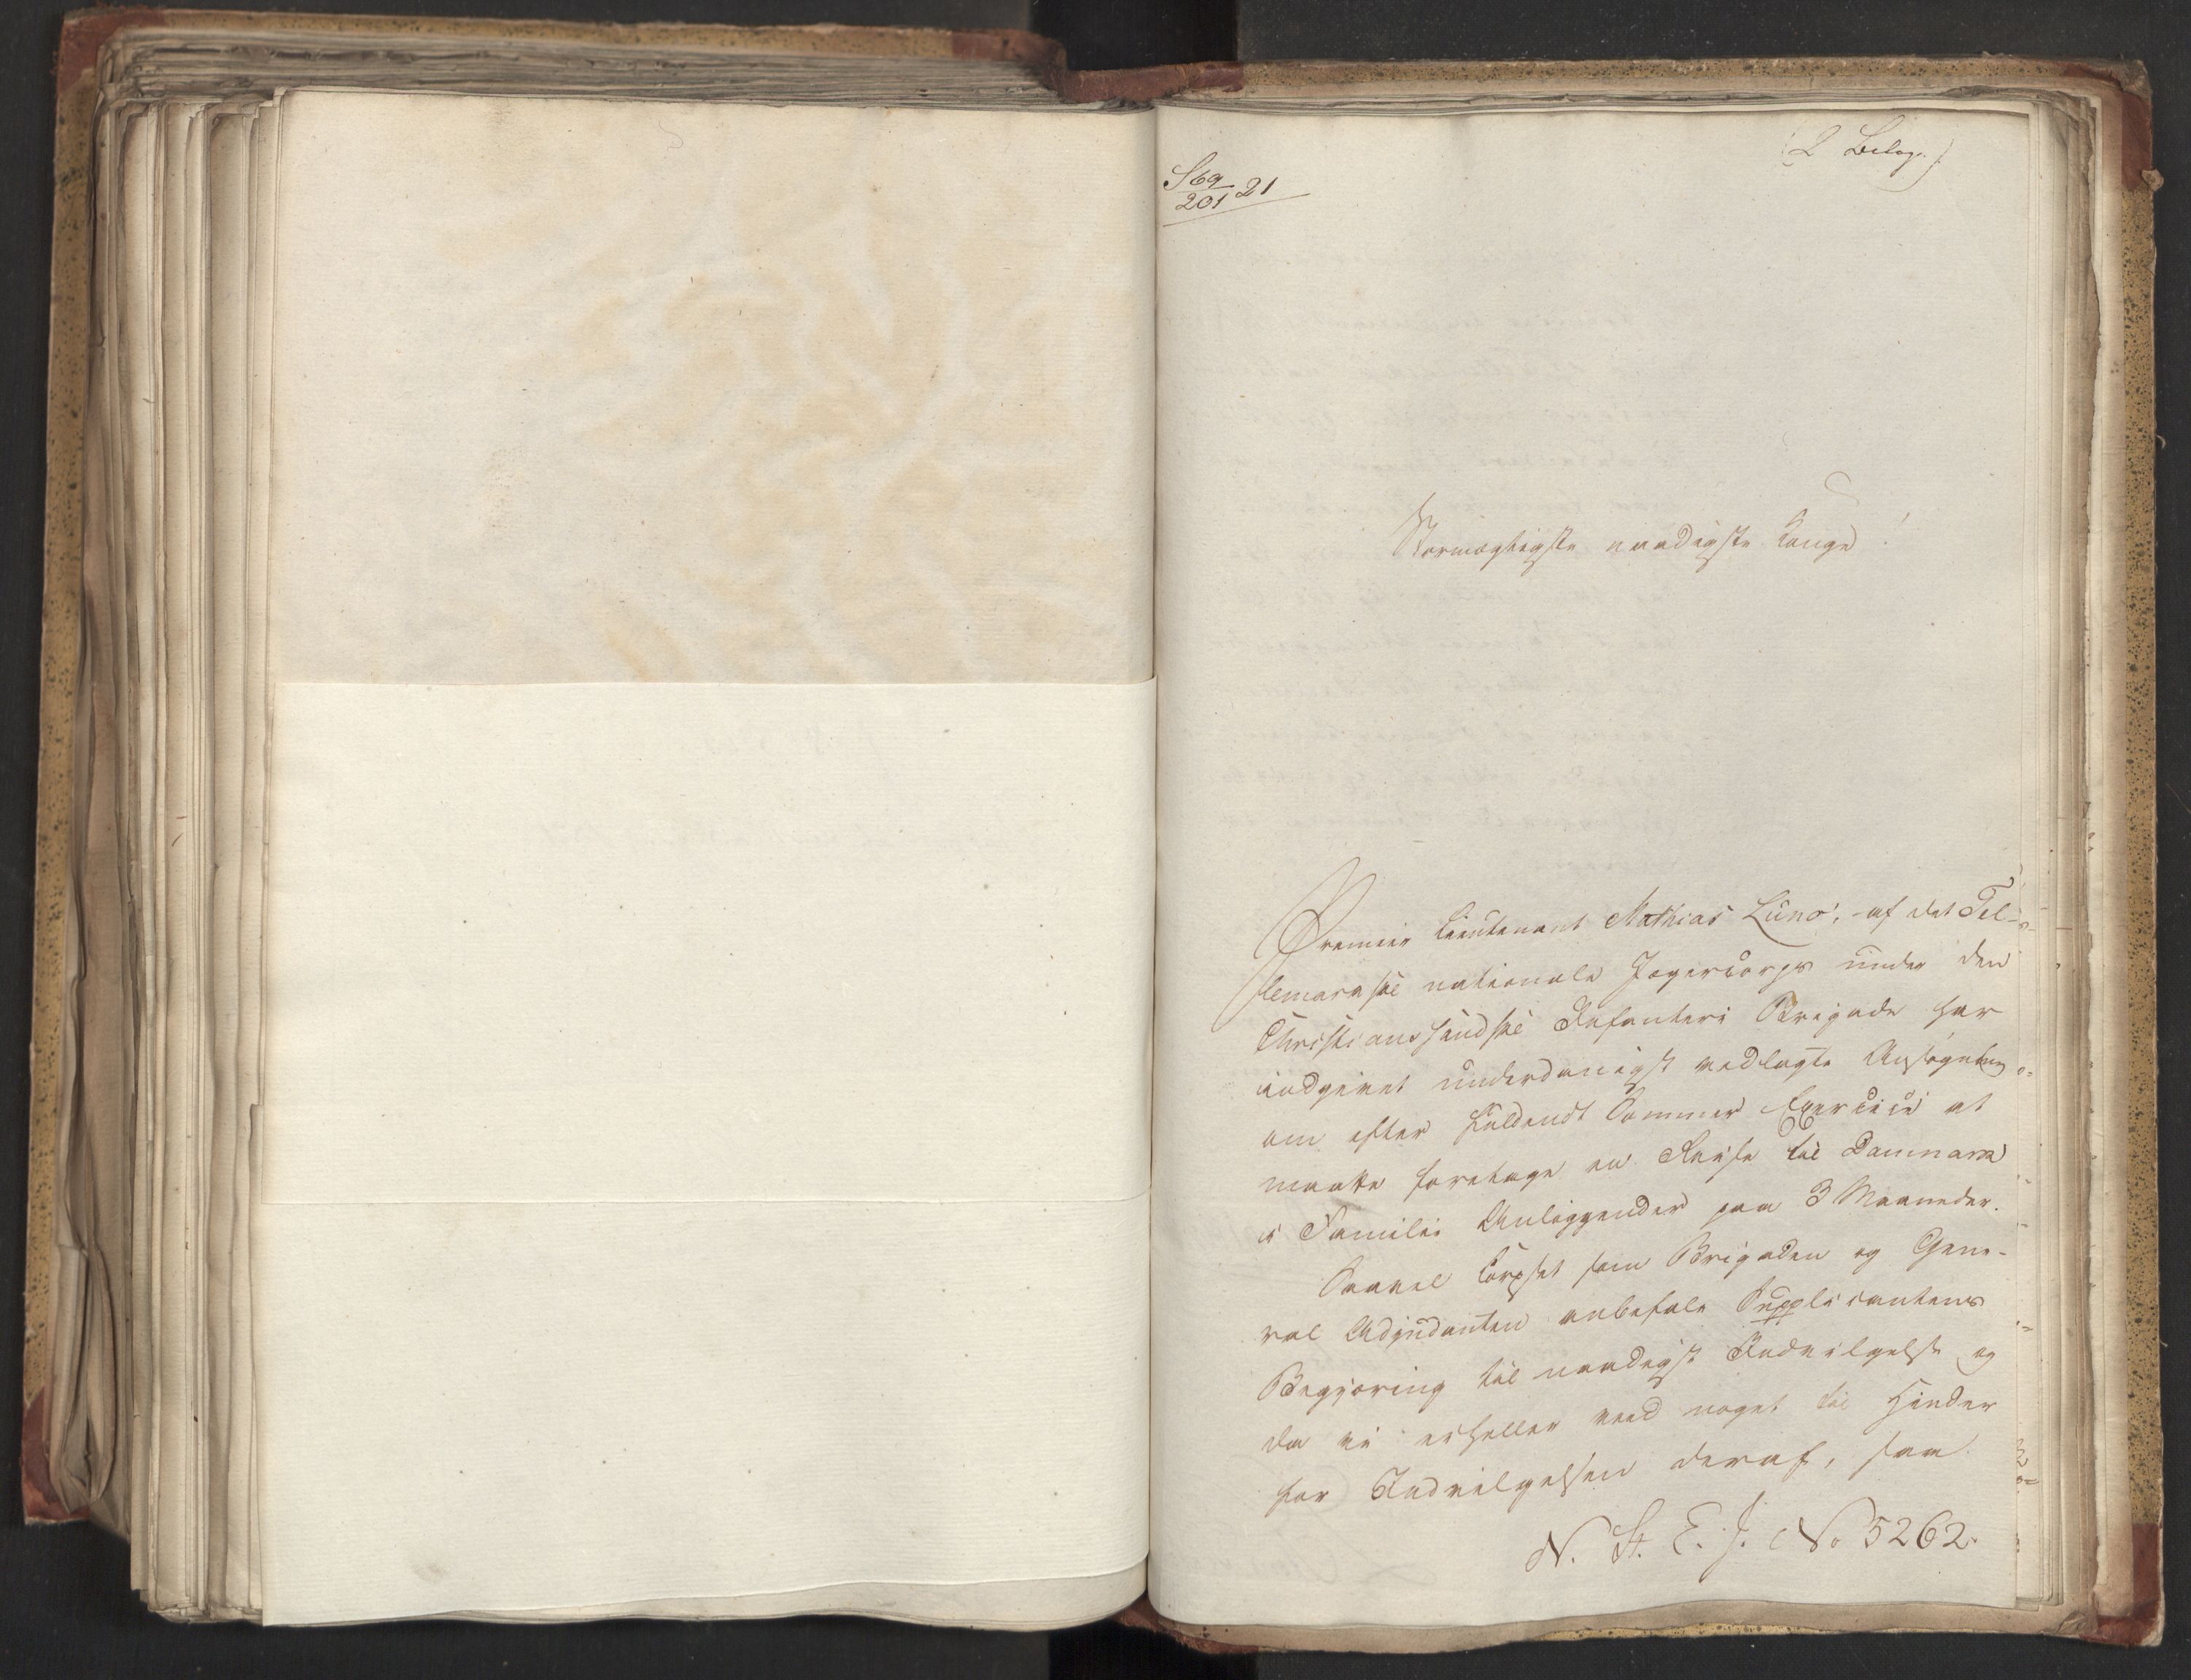 (2 Belag.)
S69
201 21
Stormægtigste naadigste Konge!
Premier Lieutenant Mathias Lüno, af det Tel-
lemarkske nationale Jægercorps under den
Christianssandske Infanteri Brigade har
indgivet underdanigst vedlagte Ansøgning
om efter fuldendt Sommer Exercice at
maatte foretage en Reise til Danmark
i Familie Anliggender paa 3 Maaneder.
Saavel Corpset som Brigaden og Gene-
ral Adjudanten anbefale Supplicantens
Begjæring til naadigst Indvilgelse og
da vi ei heller veed noget til Hinder
for Indvilgelsen deraf, saa
N. St. E. J. No 5262.